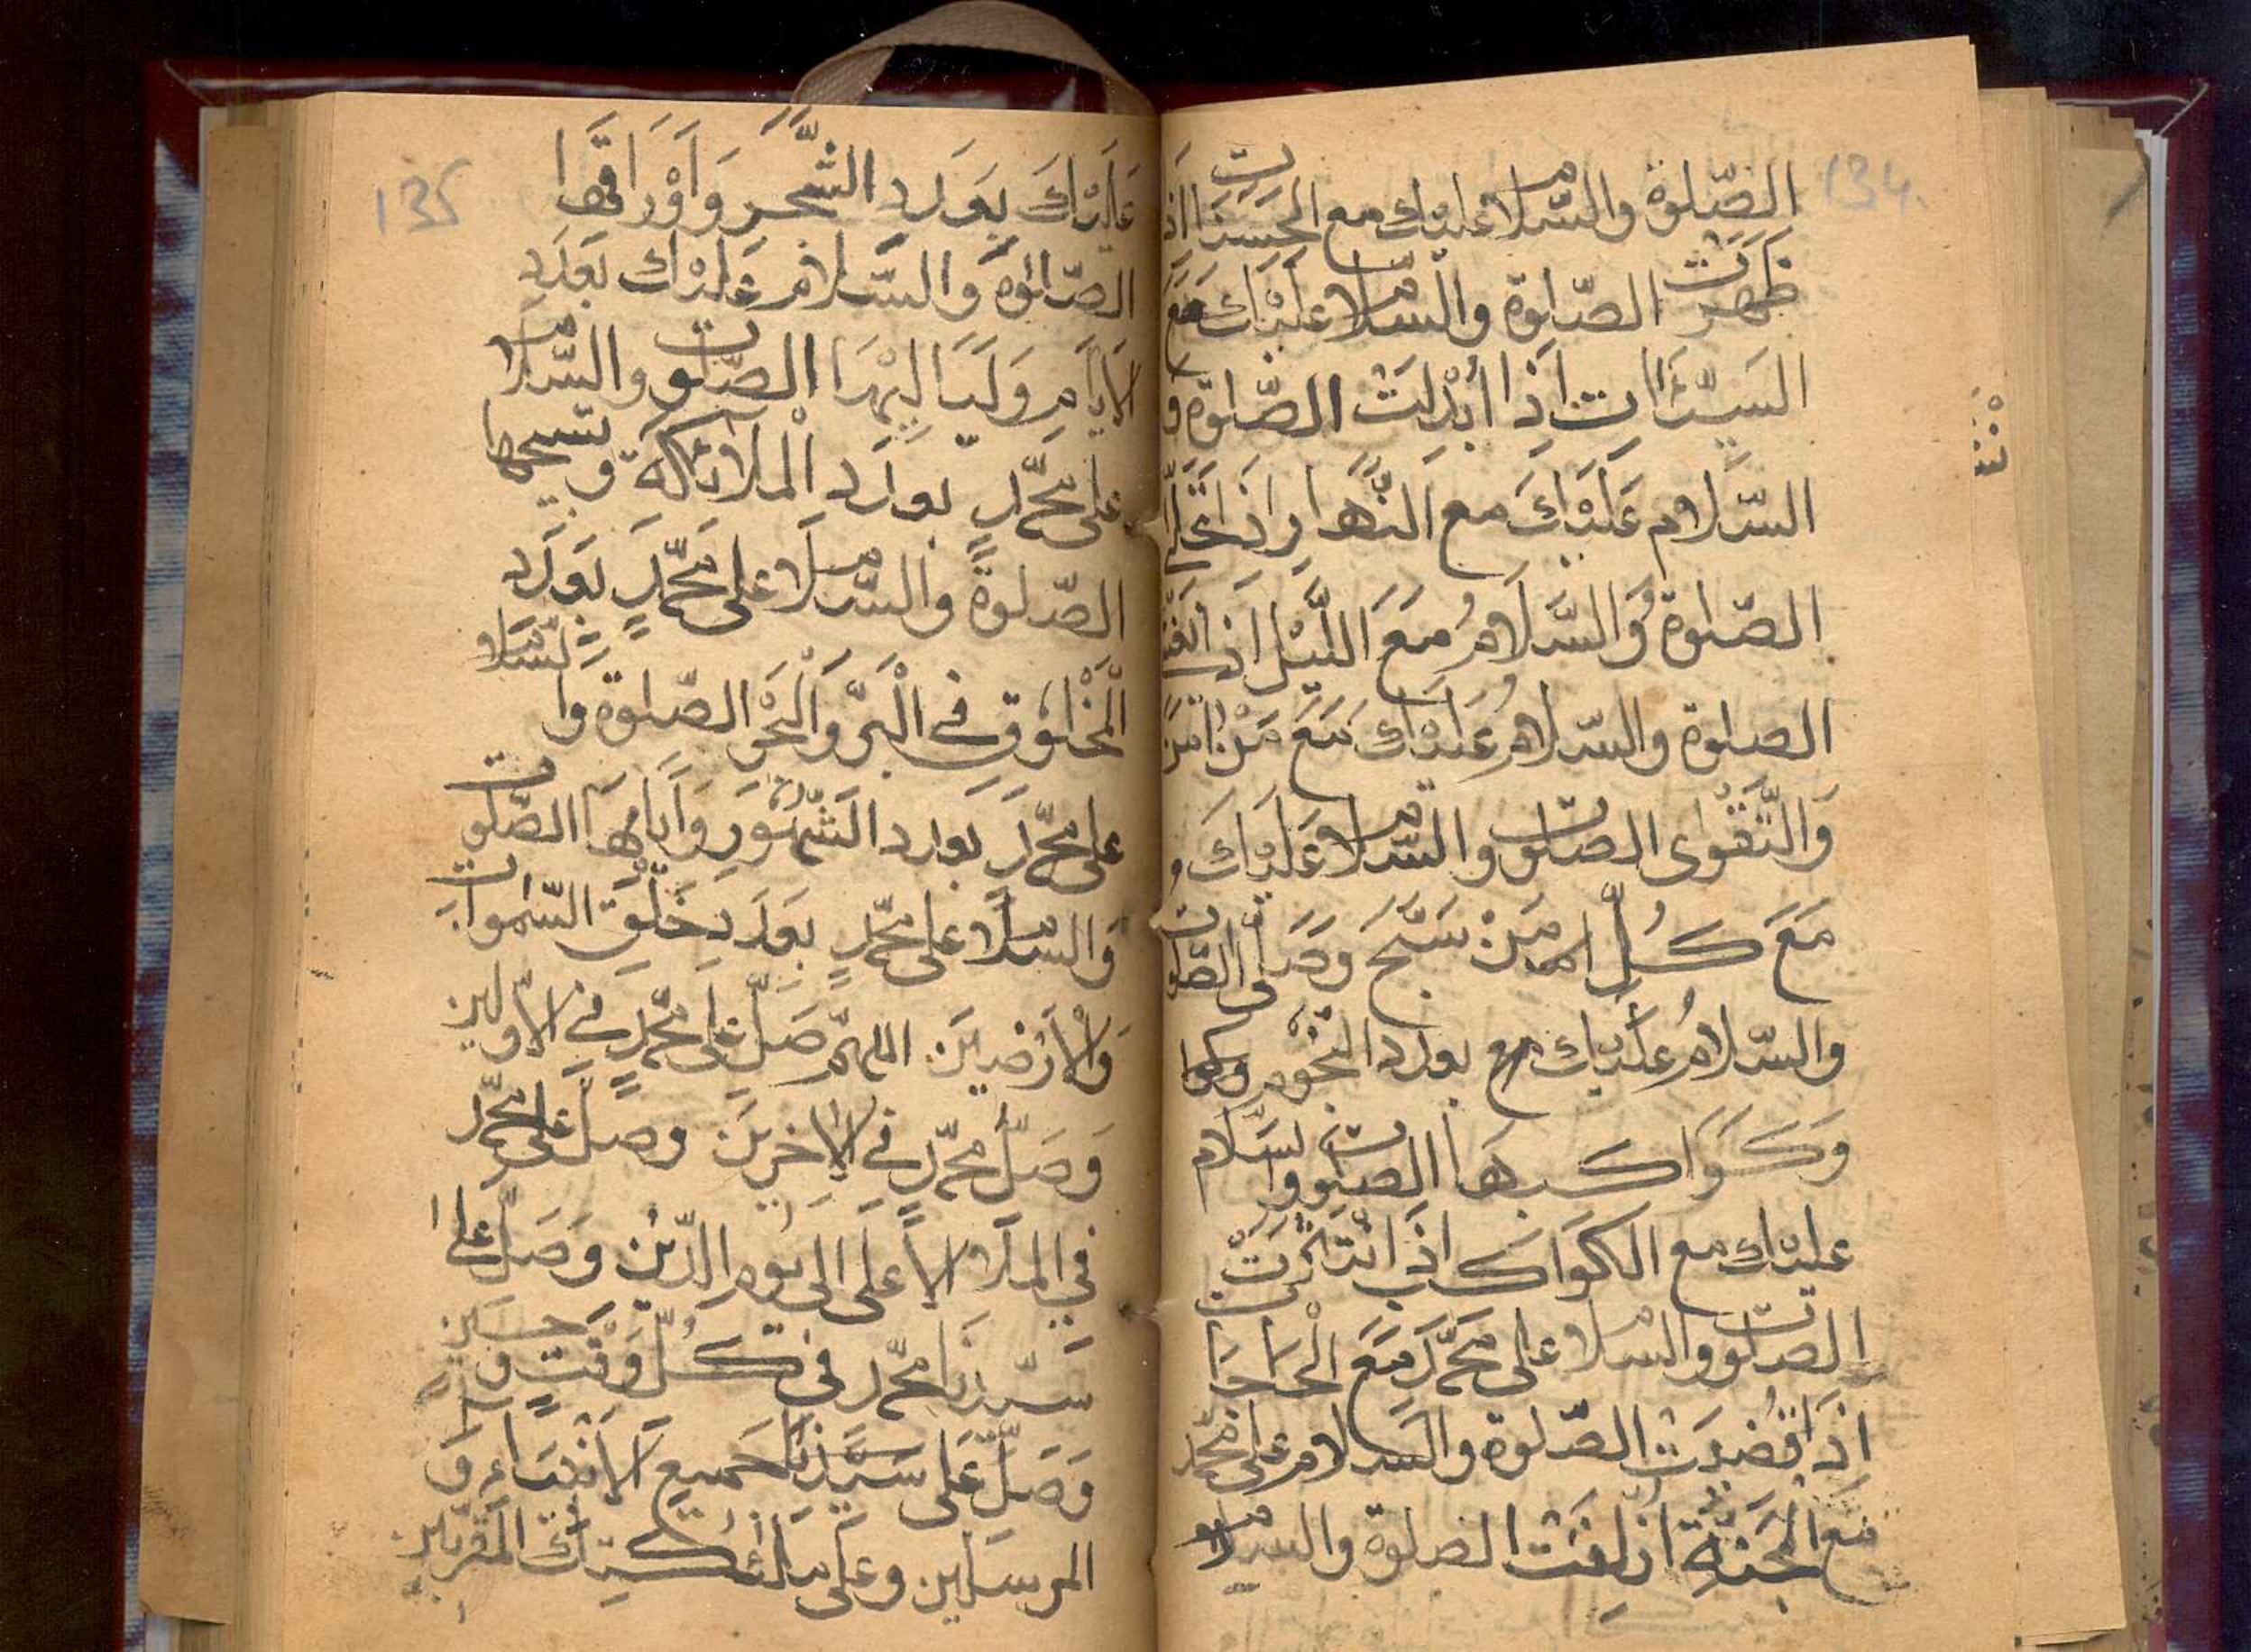 134
الصّلوة والسّلام عليك مع الحسنات اذا
ظهرت الصّلوة والسّلام عليك مع
السَيّئات اذا ابدلت الصّلوة و
السّلام عليك مع النّهار اذا تجلّى
الصّلوة والسّلام مع اللّيل اذا
الصلوة والسّلام عليك مع من امن
والتّقوى الصلوت والسّلام عليك و
مع كلّ من سبّح وصلّى الصّلوت
والسّلام عليك مع بعدد النّجوم
وكواكبها الصلوت والسّلام
عليك مع الكواكب اذا انتثرت
الصلوت والسلام على محمّد مع الحاجا
اذا قضيت الصّلوة والسّلام على محمّد
مع الجنّة ازلفت الصلوة والسلام
135
عليك بعدد الشّجر واوراقها
الصّلوة والسّلام عليك بعدد
الايام ولياليها الصّلوت والسّلام
على محمّد بعدد الملائكة وتسبيحها
الصّلوة والسّلام على محمّد بعدد
المخلوق في البرّ والبحر الصّلوة والسّلام
على محمّد بعدد الشّهور وايامها الصّلوت
والسّلام على محمّد بعدد خلق السّموات
والارضين اللهمّ صلّ على محمّد في الاوّلين
وصلّ محمّد في الاخرين وصلّ على محمّد
في الملاء الاعلى الى يوم الدّين وصلّ على
سيّدنا محمّد في كلّ وقت وحين
وصلّ على سيّدنا جميع الانبياء و
المرسلين وعلى ملائكتك المقرّبين